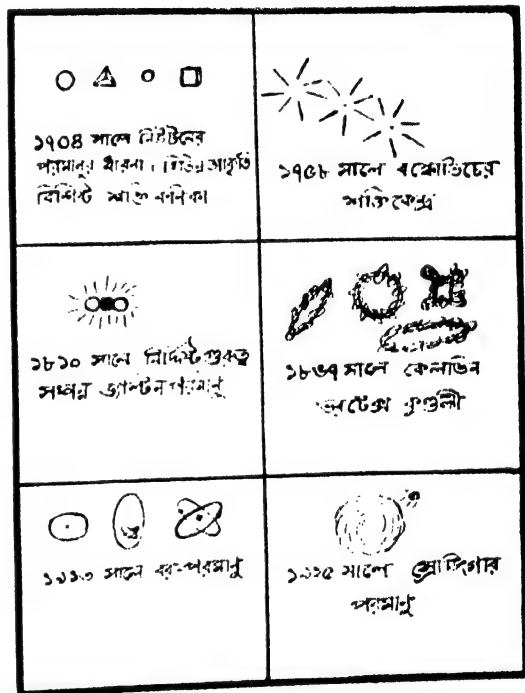 ১৭০৪ সালে নিউটনের
পরমানুর ধারনা। বিভিন্ন আকৃতি
বিশিষ্ট শক্তি কনিকা
১৭৫৮ সালে বস্কোভিচের
শক্তিকেন্দ্র
১৮১০ সালে নির্দিষ্ট গুরুত্ব
সম্পন্ন ড্যাল্টন পরমানু
১৮৬৭ সালে কেলভিন
ভরটেক্স কুণ্ডলী
১৯১৩ সালে বর-পরমানু
১৯২৫ সালে স্রোডিংগার
পরমানু